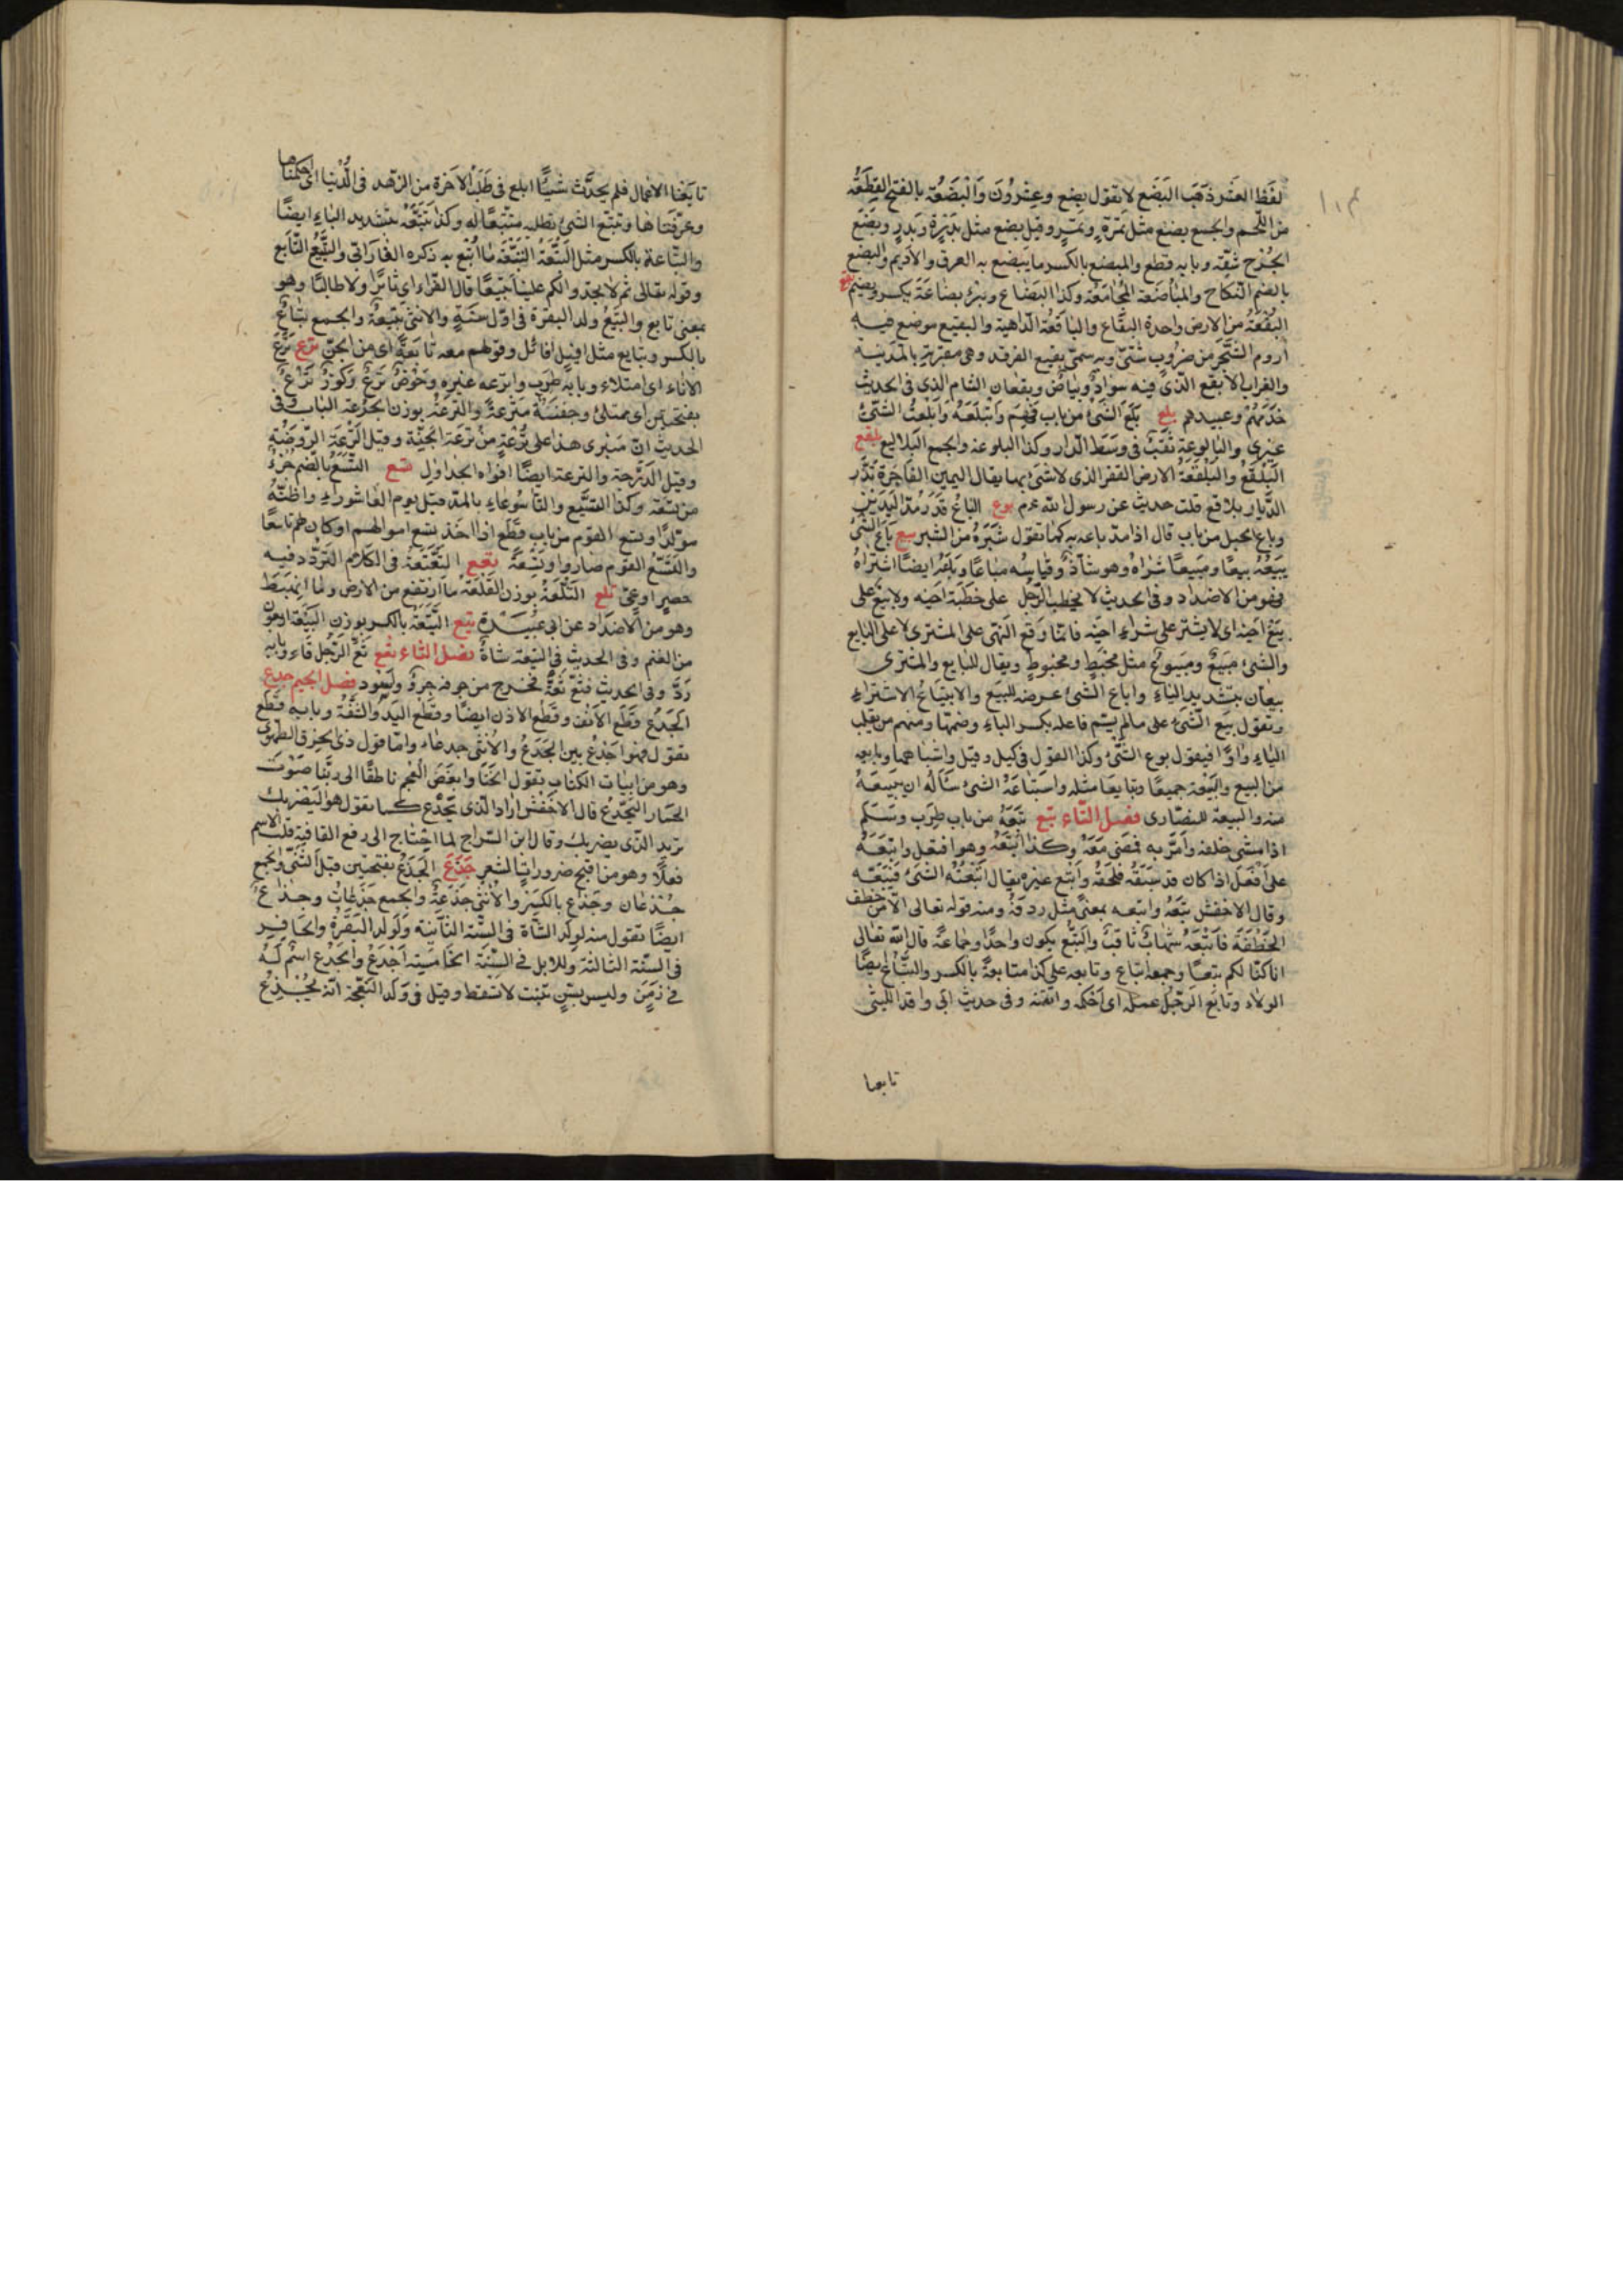 لفظ العشر ذهب البضع لا تقول بضع وعشرون والبضعة بالفتح القطعة
من اللحم والجمع بضع مثل تمرة وتمر وقيل بضع مثل بدرة وبدر وبضع
الجرح شقه وبابه قطع والمبضع بالكسر ما يبضع به العرق والاديم والبضع
بالضم النكاح والمباضعة المجامعة وكذا البضاع وبئر بضاعة بكسر وبضم بقع
البقعة من الارض واحدة البقاع والباقعة الداهية والبقيع موضع فيه
اروم الشجر من ضروب شتى وبه سمى بقيع الغرقد وهى مقبرة بالمدينة
والغراب الابقع الذى فيه سواد وبياض وبقعان الشام الذى فى الحديث
خدمهم وعبيدهم بلع بلع الشئ من باب فهم وابتلعه وابلعت الشئ
غيرى والبالوعة ثقب فى وسط الدار وكذا البلوعة والجمع البلاليع بلقع
البلقع والبلقعة الارض القفر الذى لا شئ بها يقال اليمين الفاجرة تذر
الديار بلاقع قلت حديث عن رسول الله عم بوع الباع قدر مد اليدين
وباع الحبل من باب قال اذا مد باعه به كما تقول شبره من الشبر بيع باع الشئ
يبيعه بيعا ومبيعا شراه وهو شاذ وقياسه مباعا وباعه ايضا اشتراه
فهو من الاضداد وفى الحديث لا يخطب الرجل على خطبة اخيه ولا يبع على
بيع اخيه اى لا يشتر على شراء اخيه فانما وقع النهى على المشترى لا على البايع
والشئ مبيع ومبيوع مثل مخيط ومخيوط ويقال للبايع والمشترى
بيعان بتشديد الياء واباع الشئ عرضه للبيع والابتياع الاشتراء
وتقول بيع الشئ على ما لم يسم فاعله بكسر الباء وضمها ومنهم من يقلب
الياء واوا فيقول بوع الشئ وكذا القول فى كيل وقيل واشباهها وبايعه
من البيع والبيعة جميعا وتبايعا مثله واستباعه الشئ سأله ان يبيعه
منه والبيعة للنصارى فصل التاء تبع تبعه من باب طرب وسلم
اذا مشى خلفه وامر به فمضى معه وكذا اتبعه وهو افتعل واتبعه
على افعل اذا كان قد سبقه فلحقه واتبع غيره يقال اتبعته الشئ فتبعه
وقال الاخفش تبعه واتبعه بمعنى مثل ردفه ومنه قوله تعالى الا من خطف
الخطفة فاتبعه شهاب ثاقب والتبع يكون واحدا وجماعة قال الله تعالى
انا كنا لكم تبعا وجمعه اتباع وتابعه على كذا متابعة بالكسر والتباع ايضا
الولاء وتابع الرجل عمله اى احكمه واتقنه وفى حديث ابى واقد الليثى
تابعنا
تابعنا الاعمال فلم نجد شيئا ابلغ فى طلب الاخرة من الزهد فى الدنيا اى احكمناها
وعرفناها وتتبع الشئ تطلبه متتبعا له وكذا تبعه بتشديد الباء ايضا
والتباعة بالكسر مثل التبعة التبعة ما اتبع به ذكره الفارابى والتبيع التابع
وقوله تعالى ثم لا تجدوا لكم علينا تبيعا قال الفراء اى ثائرا ولا طالبا وهو
بمعنى تابع والتبيع ولد البقرة فى اول سنة والانثى تبيعة والجمع تباع
بالكسر وتبايع مثل افيل افائل وقولهم معه تابعة اى من الجن ترع ترع
الاناء اى امتلاء وبابه طرب واترعه غيره وحوض ترع وكوز ترع
بفتحتين اى ممتلئ وجفنة مترعة والترعة بوزن الجرعة الباب وفى
الحديث ان منبرى هذا على ترعة من ترعة الجنة وقيل الترعة الروضة
وقيل الدرجة والترعة ايضا افواه الجداول تسع التسع بالضم جزء
من تسعة وكذا التسيع والتاسوعاء بالمد قبل يوم العاشوراء واظنه
مولدا وتسع القوم من باب قطع اذا اخذ تسع اموالهم او كان لهم تاسعا
واتسع القوم صاروا تسعة تعع التعتعة فى الكلام التردد فيه
حصر او عى تلع التلعة بوزن القلعة ما ارتفع من الارض ولما انهبط
وهو من الاضداد عن ابى عبيدة تيع التيعة بالكسر بوزن البيعة اربعون
من الغنم وفى الحديث فى التيعة شاة فصل الثاء ثعع ثع الرجل قاء وبابه
رد وفى الحديث فثع ثعة فخرج من جوفه جرو اسود فصل الجيم جدع
الجدع قطع الانف وقطع الاذن ايضا وقطع اليد والشفة وبابه قطع
تقول فهو اجدع بين الجدع والانثى جدعاء واما قول ذى الخرق الطهوى
وهو من ابيات الكتاب يقول الخنا وابغض العجم ناطقا الى ربنا صوت
الحمار اليجدع قال الاخفش اراد الذى يجدع كما تقول هو اليضربك
تريد الذى يضربك وقال ابن السراج لما احتاج الى رفع القافية قلب الاسم
فعلا وهو من اقبح ضرورات الشعر جذع الجذع بفتحتين قبل الثنى والجمع
جذعان وجذاع بالكسر والانثى جذعة والجمع جذعات وجذاع
ايضا تقول منه لولد الشاة فى السنة الثانية ولولد البقرة والحافر
فى السنة الثالثة وللابل فى السنة الخامسة اجذع والجذع اسم له
فى زمن وليس بسن تنبت لا تسقط وقيل فى ولد النعجة انه يجذع